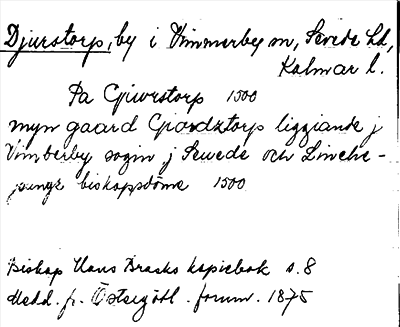 Djurstorp, by i Vimmerby sn, Sevede hd,
Kalmar l.
Pa Gjwrstorp 1500
myn gaard Giordztorp liggiande j
Vimberby sogin j Sewede och Linche-
pungx biskopsdöme 1500
Biskop Hans Brasks kopiebok s. 8
Medd. fr. Östergötl. fornm. 1875